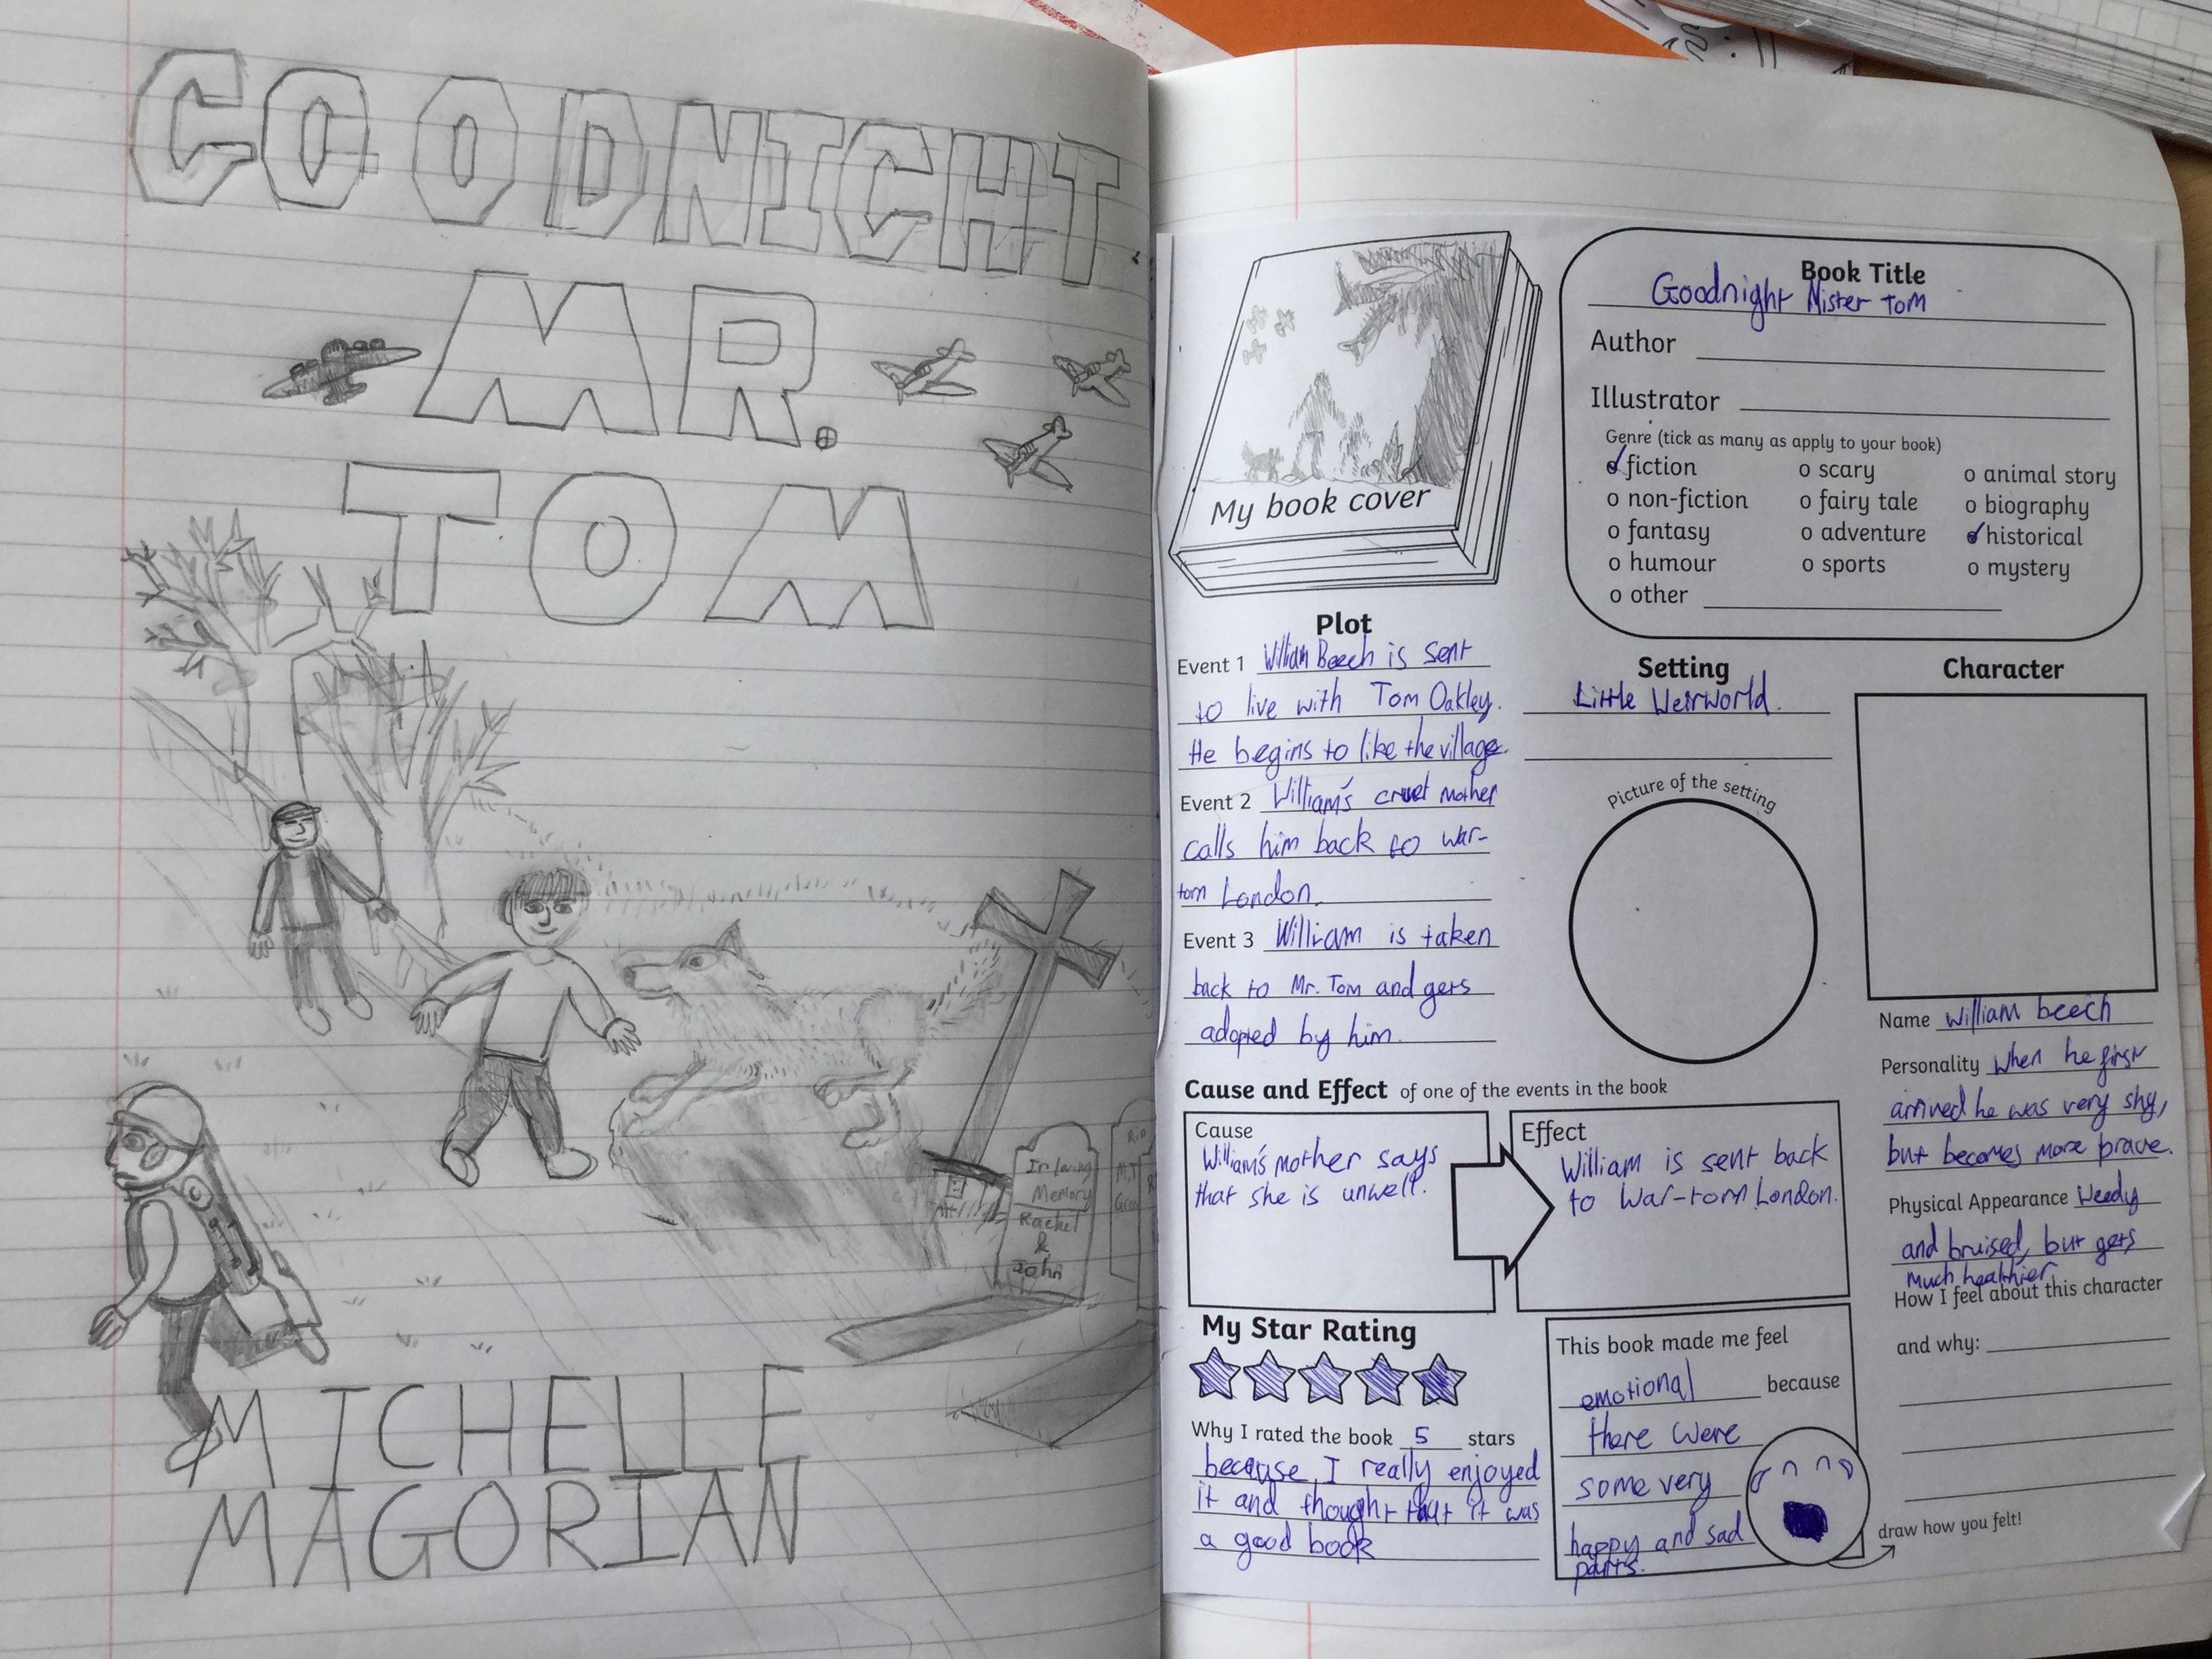 GOODNIGHT
MR.
TOM
In loving
Memory
Rachel
&
John
RIP
MICHELLE
MAGORIAN
My book cover
Book Title
Goodnight Mister Tom
Author
Illustrator
Genre (tick as many as apply to your book)
fiction
non-fiction
fantasy
humour
other
scary
fairy tale
adventure
sports
animal story
biography
historical
mystery
Plot
Event 1 William Beech is sent
to live with Tom Oakley.
He begins to like the village.
Event 2 William's cruel mother
calls him back to war-
torn London.
Event 3 William is taken
back to Mr. Tom and gets
adopted by him.
Setting
Little Weirworld.
Picture of the setting
Character
Name william beech
Personality When he first
arrived he was very shy,
but becomes more brave.
Physical Appearance Weedy
and bruised, but gets
much healthier
How I feel about this character
and why:
Cause and Effect of one of the events in the book
Cause
William's mother says
that she is unwell.
Effect
William is sent back
to war-torn London.
My Star Rating
Why I rated the book 5 stars
because I really enjoyed
it and thought that it was
a good book
This book made me feel
emotional because
there were
some very
happy and sad
parts.
draw how you felt!